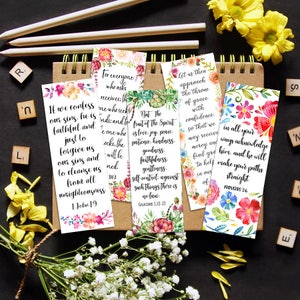 If we confess
our sins, he is
faithful and
just to
forgive us
our sins and
to cleanse us
from all
unrighteousness
1 John 1:9
For everyone
who
receives
who
But the
fruit of the Spirit
is love, joy, peace,
patience, kindness,
goodness,
faithfulness,
gentleness,
self-control; against
such things there is
no law.
Galatians 5:22-23
Let us then
approach
the throne
of grace
with
confidence,
so that we
may
in all your
ways acknowledge
him, and he will
make your paths
straight.
PROVERBS 3:6